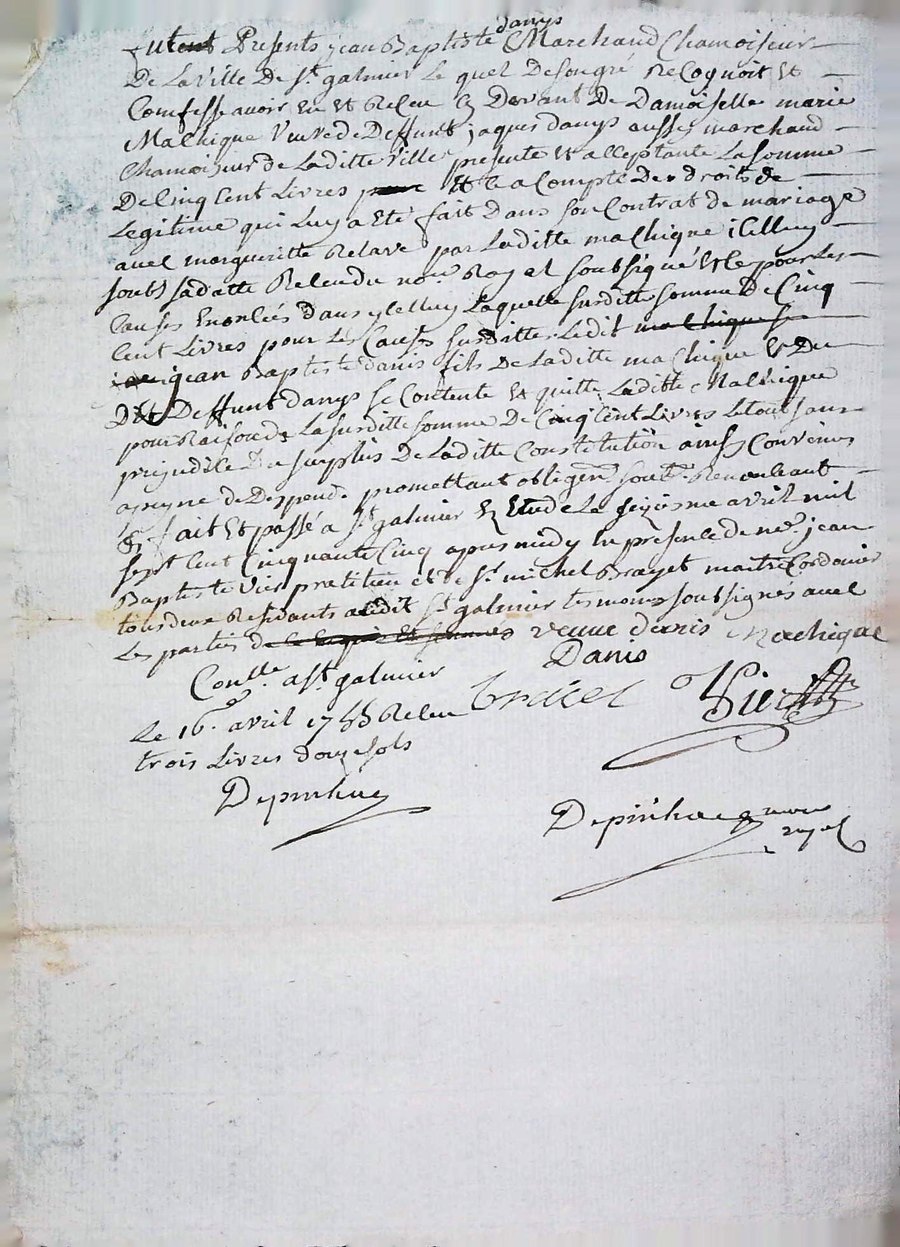 futent Presents jean Baptiste danys Marchand Chamoiseur
De La Ville de St galmier Le quel De son gré Recognoit Et
Comfesse avoir Eu Et Receu cy Devant De Damoiselle marie
Malchique Veuve de Deffunt jaques danys aussy marchand
Chamoiseur de Laditte Ville presente Et acceptante La somme
De Cinq Cent Livres Et Ce a Compte des droits de
Legitime qui Luy a Eté fait dans son Contrat de mariage
avec margueritte Relave par Laditte malchique icelluy
soubs sa datte Receu du nore Royal soussigné Et Ce pour Les
Causes Enoncées dans ycelluy Laquelle susditte somme De Cinq
Cent Livres pour Les Causes susdittes Ledit malchique se
jean Baptiste danis fils De Laditte malchique Et Du
Dit Deffunt danys se Contente Et quitte Laditte Malchique
pour Raison de La susditte somme De Cinq Cent Livres Le tout sans
prejudice Du surplus De Laditte Constitution ainsy Convenus
a peyne de Despends promettant obligeant soubm. Renonceant
& fait Et passé a St galmier En Etude Le seziesme avril mil
sept Cent Cinquante Cinq apres midy En presence de me jean
Baptiste Vier pratitien et de Sr michel Brayet maitre Cordonier
tous deux Residants audit St galmier temoins soussignes avec
Les parties veuve danis Machique
Danis
Conlle a St galmier
Le 16e avril 1755 Receu
trois Livres douze sols
Vier
Depinhac
Depinhac nore
royal